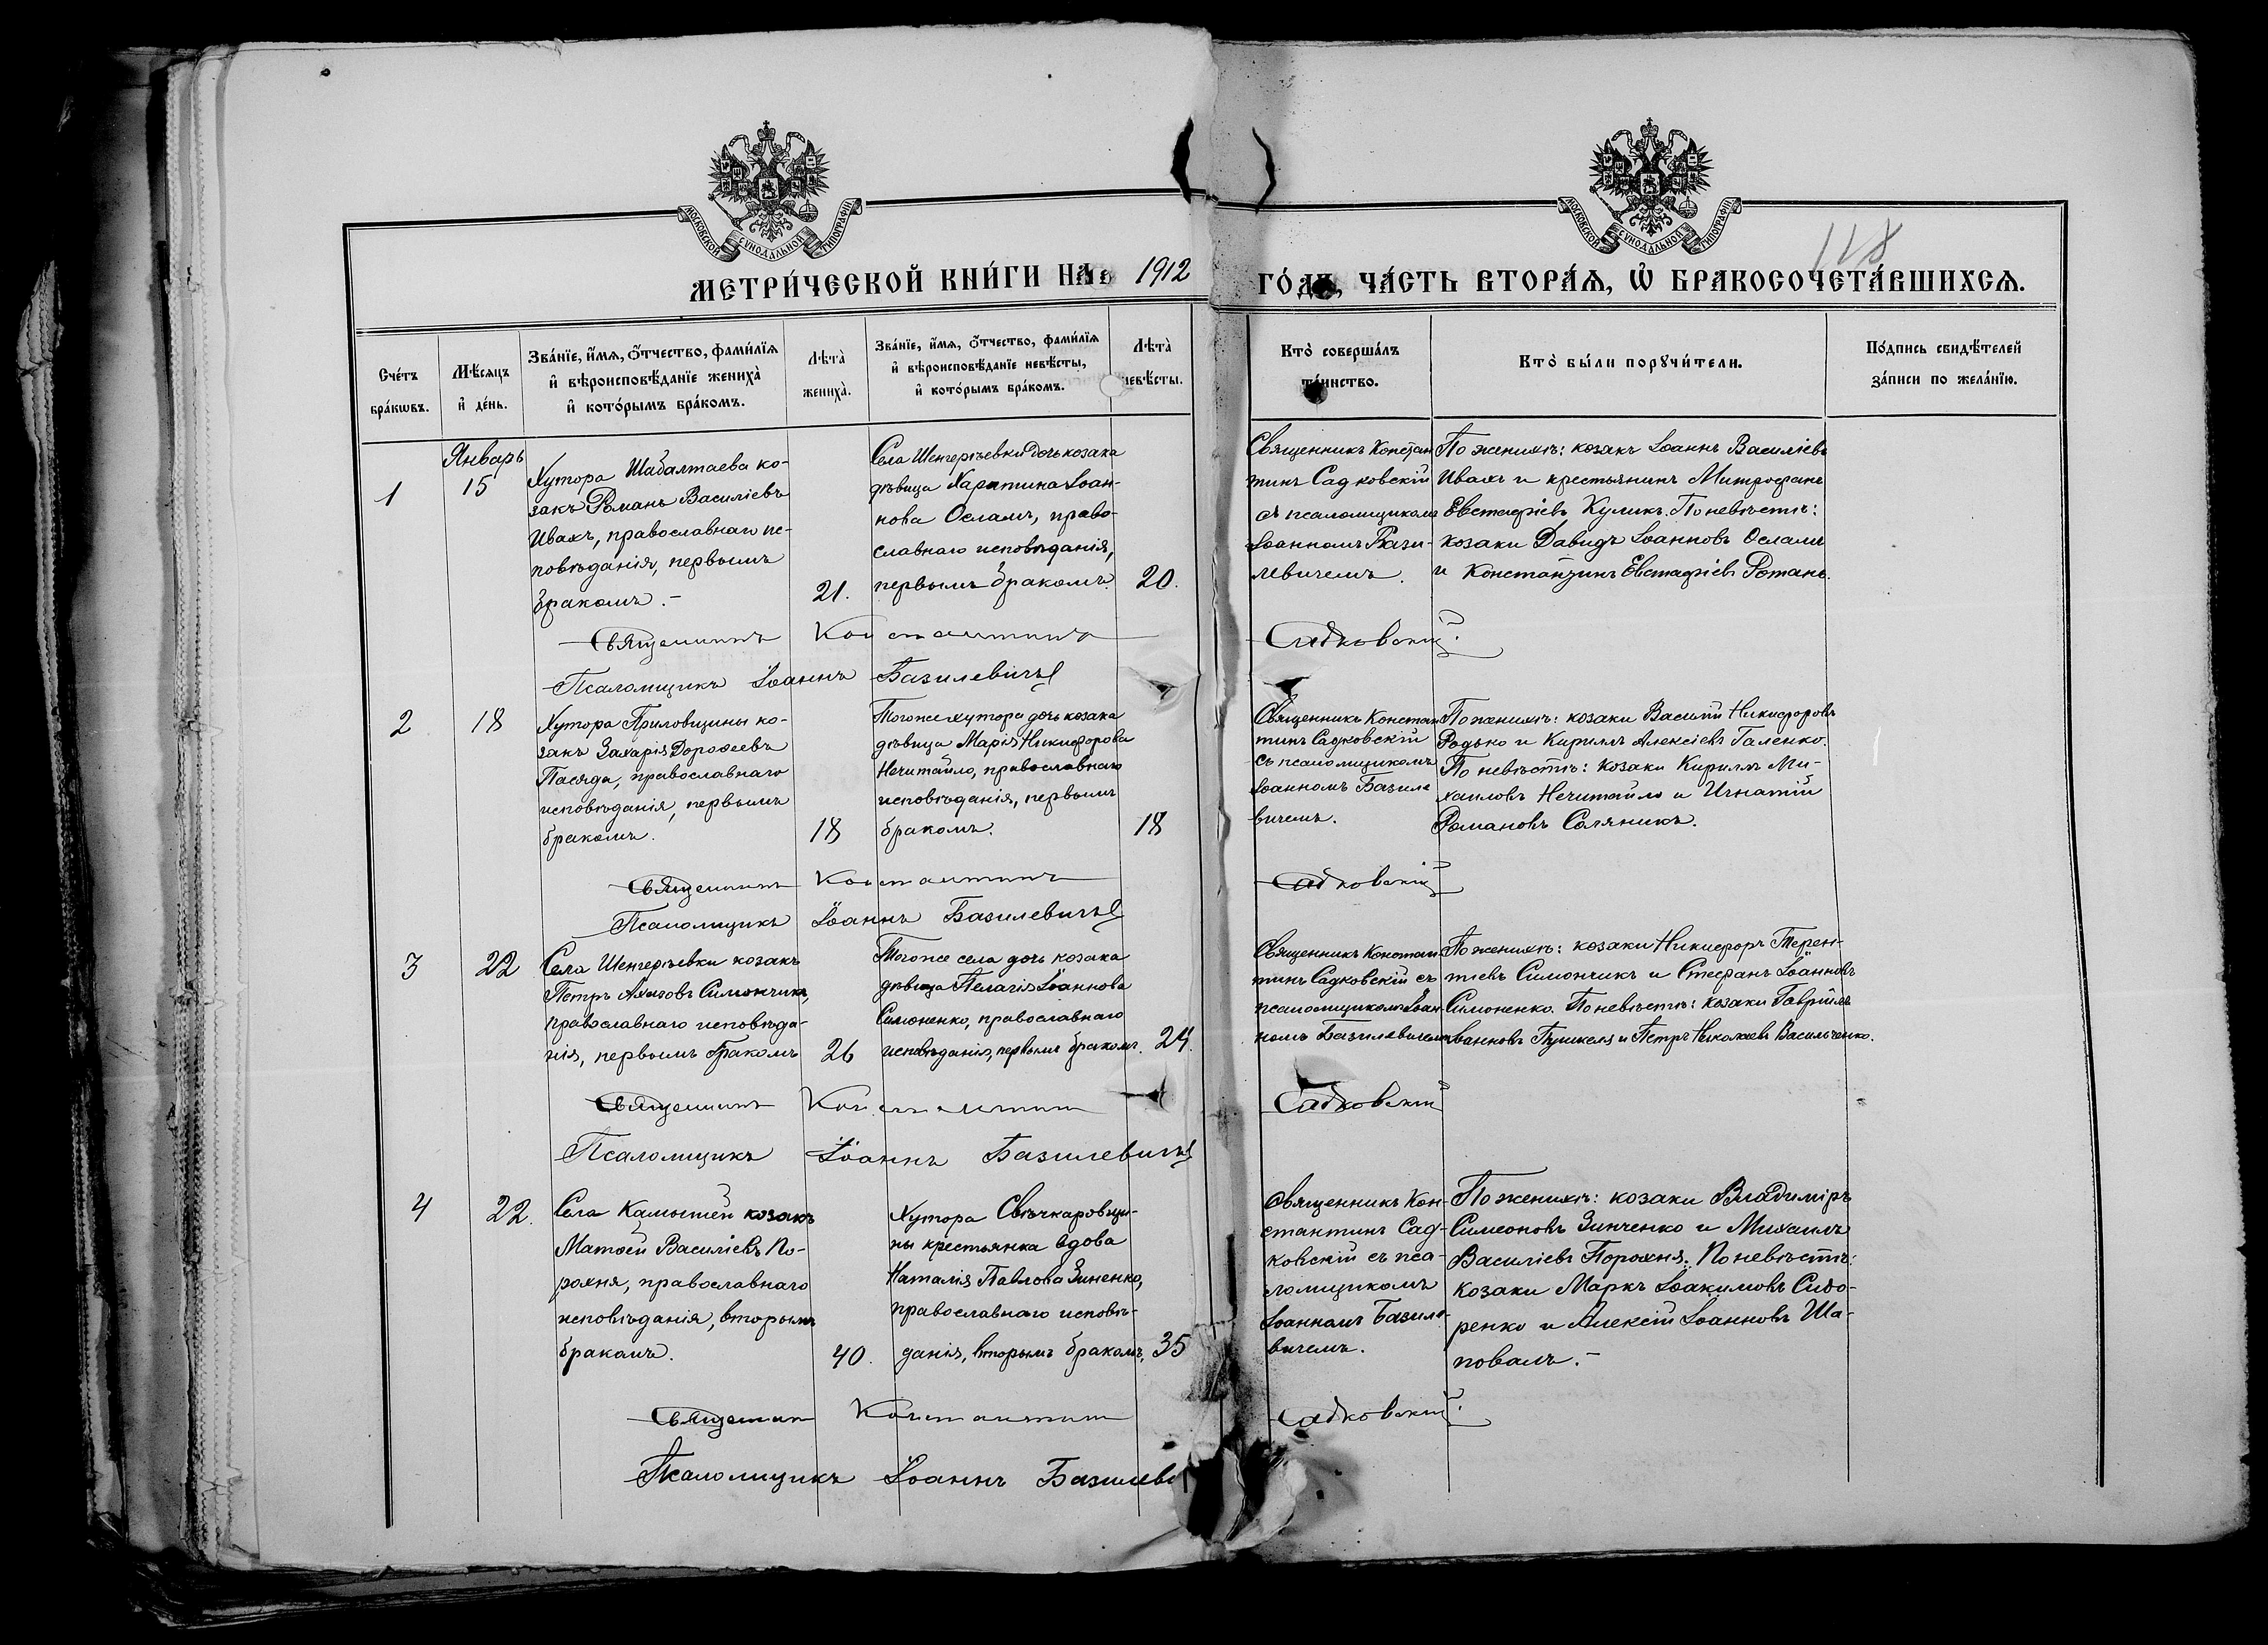 МОСКОВСКОЙ СѴНОДАЛЬНОЙ ТИПОГРАФІИ
МОСКОВСКОЙ СѴНОДАЛЬНОЙ ТИПОГРАФІИ
118
МЕТРИ́ЧЕСКОЙ КНИ́ГИ НА 1912 ГО́ДЪ, ЧА́СТЬ ВТОРА́Ѧ, Ѡ҆ БРАКОСОЧЕТА́ВШИХСѦ.
Сче́тъ
бра́кѡвъ.
Мѣ́сяцъ
и҆ де́нь.
Зва́нїе, и҆́мѧ, о҆́тчество, фами́лїѧ
и҆ вѣроисповѣ́данїе жениха̀
и҆ кото́рымъ бра́комъ.
Лѣта̀
жениха̀.
Зва́нїе, и҆́мѧ, о҆́тчество, фами́лїѧ
и҆ вѣроисповѣ́данїе невѣ́сты,
и҆ кото́рымъ бра́комъ.
Лѣта̀
невѣ́сты.
Кто̀ соверша́лъ
та́инство.
Кто̀ бы́ли порꙋчи́тели.
По́дпись свидѣ́телей
за́писи по жела́нїю.
1
Январь
15
Хутора Шабалтаева ко-
закъ Романъ Василіевъ
Ивахъ, православнаго ис-
повѣданія, первымъ
бракомъ.-
21.
Села Шенгеріевки дочь козака
дѣвица Харитина Іоан-
нова Осламъ, право-
славнаго исповѣданія,
первымъ бракомъ.
20.
Священникъ Констан
тинъ Садковскій
съ псаломщикомъ
Іоанномъ Бази-
левичемъ.
По женихѣ: козакъ Іоаннъ Василіевъ
Ивахъ и крестьянинъ Митрофанъ
Евстафіевъ Куликъ. По невѣстѣ:
козаки Давидъ Іоанновъ Осламъ
и Константинъ Евстафіевъ Ротань.
Священникъ Константинъ Садковскій.
Псаломщикъ Іоаннъ Базилевичъ
2
18
Хутора Приловщины ко-
закъ Захарія Дороѳеевъ
Пасяда, православнаго
исповѣданія, первымъ
бракомъ.
18
Тогоже хутора дочь козака
дѣвица Марія Никифорова
Нечитайло, православнаго
исповѣданія, первымъ
бракомъ.
18
Священникъ Констан
тинъ Садковскій
съ псаломщикомъ
Іоанномъ Базиле
вичемъ.
По женихѣ: козаки Василій Никифоровъ
Родько и Кириллъ Алексіевъ Галенко.
По невѣстѣ: козаки Кириллъ Ми-
хаиловъ Нечитайло и Игнатій
Романовъ Соляникъ.
Священникъ Константинъ Садковскій
Псаломщикъ Іоаннъ Базилевичъ
3
22
Села Шенгеріевки козакъ
Петръ Симончикъ,
православнаго исповѣда-
нія, первымъ бракомъ
26
Тогоже села дочь козака
дѣвица Пелагія Іоаннова
Симоненко, православнаго
исповѣданія, первымъ бракомъ.
24.
Священникъ Констан
тинъ Садковскій съ
псаломщикомъ Іоан
номъ Базилевичемъ
По женихѣ: козаки Никифоръ Терен-
тіевъ Симончикъ и Стефанъ Іоанновъ
Симоненко. По невѣстѣ: козаки Гавріилъ
Іоанновъ и Петръ Николаевъ Васильченко.
Священникъ Константинъ Садковскій
Псаломщикъ Іоаннъ Базилевичъ
4
22.
Села Камышей козакъ
Матѳей Василіевъ По-
рохня, православнаго
исповѣданія, вторымъ
бракомъ.
40.
Хутора Свѣчкаровщи-
ны крестьянка вдова
Наталія Павлова Зиненко,
православнаго исповѣ-
данія, вторымъ бракомъ.
35
Священникъ Кон-
стантинъ Сад-
ковскій съ пса-
ломщикомъ
Іоанномъ Базиле-
вичемъ.
По женихѣ: козаки Владиміръ
Симеоновъ Зинченко и Михаилъ
Василіевъ Порохня. По невѣстѣ:
козаки Маркъ Іоакимовъ Сидо-
ренко и Алексій Іоанновъ Ша-
повалъ.-
Священникъ Константинъ Садковскій.
Псаломщикъ Іоаннъ Базилев